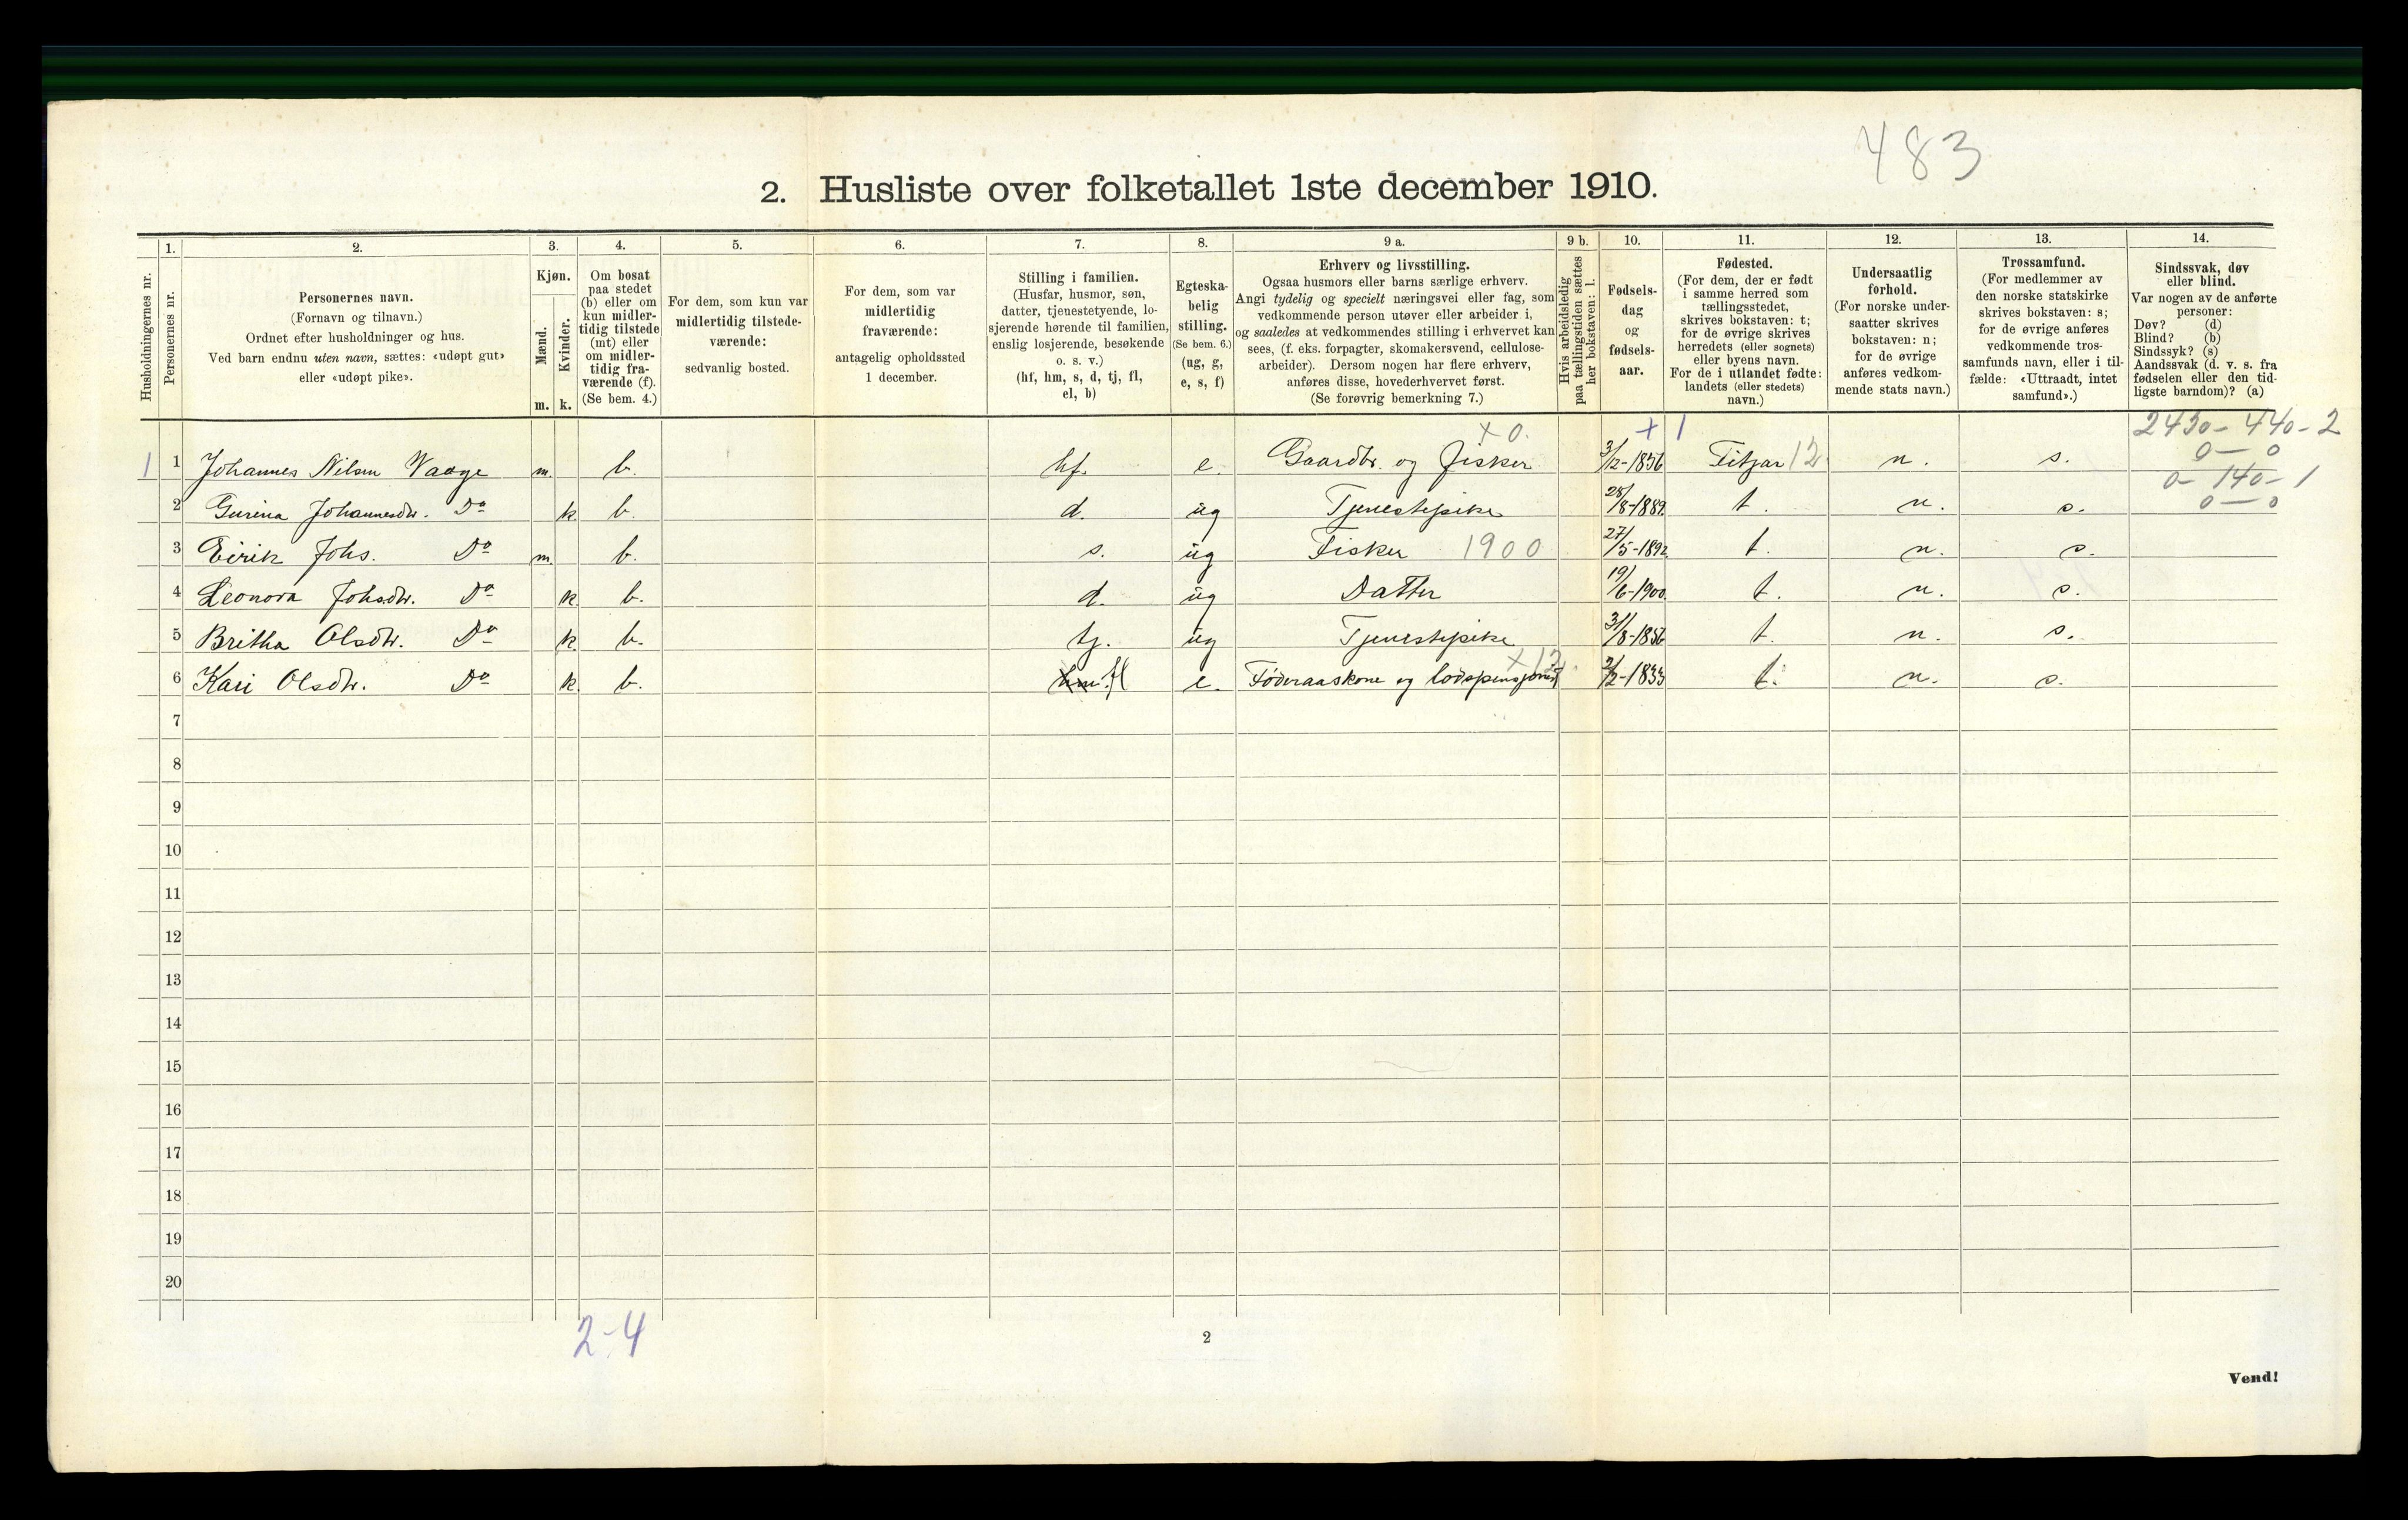 483
2. Husliste over folketallet 1ste december 1910.
Husholdningernes nr.
1.
Personernes nr.
2.
Personernes navn.
(Fornavn og tilnavn.)
Ordnet efter husholdninger og hus.
Ved barn endnu uten navn, sættes: «udøpt gut»
eller «udøpt pike».
3.
Kjøn.
Mænd.
Kvinder.
m. k.
4.
Om bosat
paa stedet
(b) eller om
kun midler-
tidig tilstede
(mt) eller
om midler-
tidig fra-
værende (f).
(Se bem. 4.)
5.
For dem, som kun var
midlertidig tilstede-
værende:
sedvanlig bosted.
6.
For dem, som var
midlertidig
fraværende:
antagelig opholdssted
1 december.
7.
Stilling i familien.
(Husfar, husmor, søn,
datter, tjenestetyende, lo-
sjerende hørende til familien,
enslig losjerende, besøkende
o. s. v.)
(hf, hm, s, d, tj, fl,
el, b)
8.
Egteska-
belig
stilling.
(Se bem. 6.)
(ug, g,
e, s, f)
9 a.
Erhverv og livsstilling.
Ogsaa husmors eller barns særlige erhverv.
Angi tydelig og specielt næringsvei eller fag, som
vedkommende person utøver eller arbeider i,
og saaledes at vedkommendes stilling i erhvervet kan
sees, (f. eks. forpagter, skomakersvend, cellulose-
arbeider). Dersom nogen har flere erhverv,
anføres disse, hovederhvervet først.
(Se forøvrig bemerkning 7.)
9 b.
Hvis arbeidsledig
paa tællingstiden sættes
her bokstaven: l.
10.
Fødsels-
dag
og
fødsels-
aar.
11.
Fødested.
(For dem, der er født
i samme herred som
tællingsstedet,
skrives bokstaven: t;
for de øvrige skrives
herredets (eller sognets)
eller byens navn.
For de i utlandet fødte:
landets (eller stedets)
navn.)
12.
Undersaatlig
forhold.
(For norske under-
saatter skrives
bokstaven: n;
for de øvrige
anføres vedkom-
mende stats navn.)
13.
Trossamfund.
(For medlemmer av
den norske statskirke
skrives bokstaven: s;
for de øvrige anføres
vedkommende tros-
samfunds navn, eller i til-
fælde: «Uttraadt, intet
samfund».)
14.
Sindssvak, døv
eller blind.
Var nogen av de anførte
personer:
Døv? (d)
Blind? (b)
Sindssyk? (s)
Aandssvak (d. v. s. fra
fødselen eller den tid-
ligste barndom)? (a)
x 0. + 1 2430 - 440 - 2
1 1 Johannes Nilsen Vaage m. b. hf. e. Gaardbr. og fisker 3/12-1856 Fitjar 12 n. s. 0 — 0
0 - 140 - 1
2 Gurina Johannesdtr. Do k. b. d. ug Tjenestepike 28/8-1889. t. n. s. 0 — 0
3 Eirik Johs. Do m. b. s. ug Fisker 1900 27/5-1892 t. n. s.
4 Leonora Johsdtr. Do k. b. d. ug Datter 19/6-1900. t. n. s.
5 Britha Olsdtr. Do k. b. tj. ug Tjenestepike 31/8-1856 t. n. s.
x 12.
6 Kari Olsdtr. Do k. b. hm. fl e. Føderaadskone og lodspensjonist 2/2-1833 t. n. s.
7
8
9
10
11
12
13
14
15
16
17
18
19
20
2-4
2
Vend!